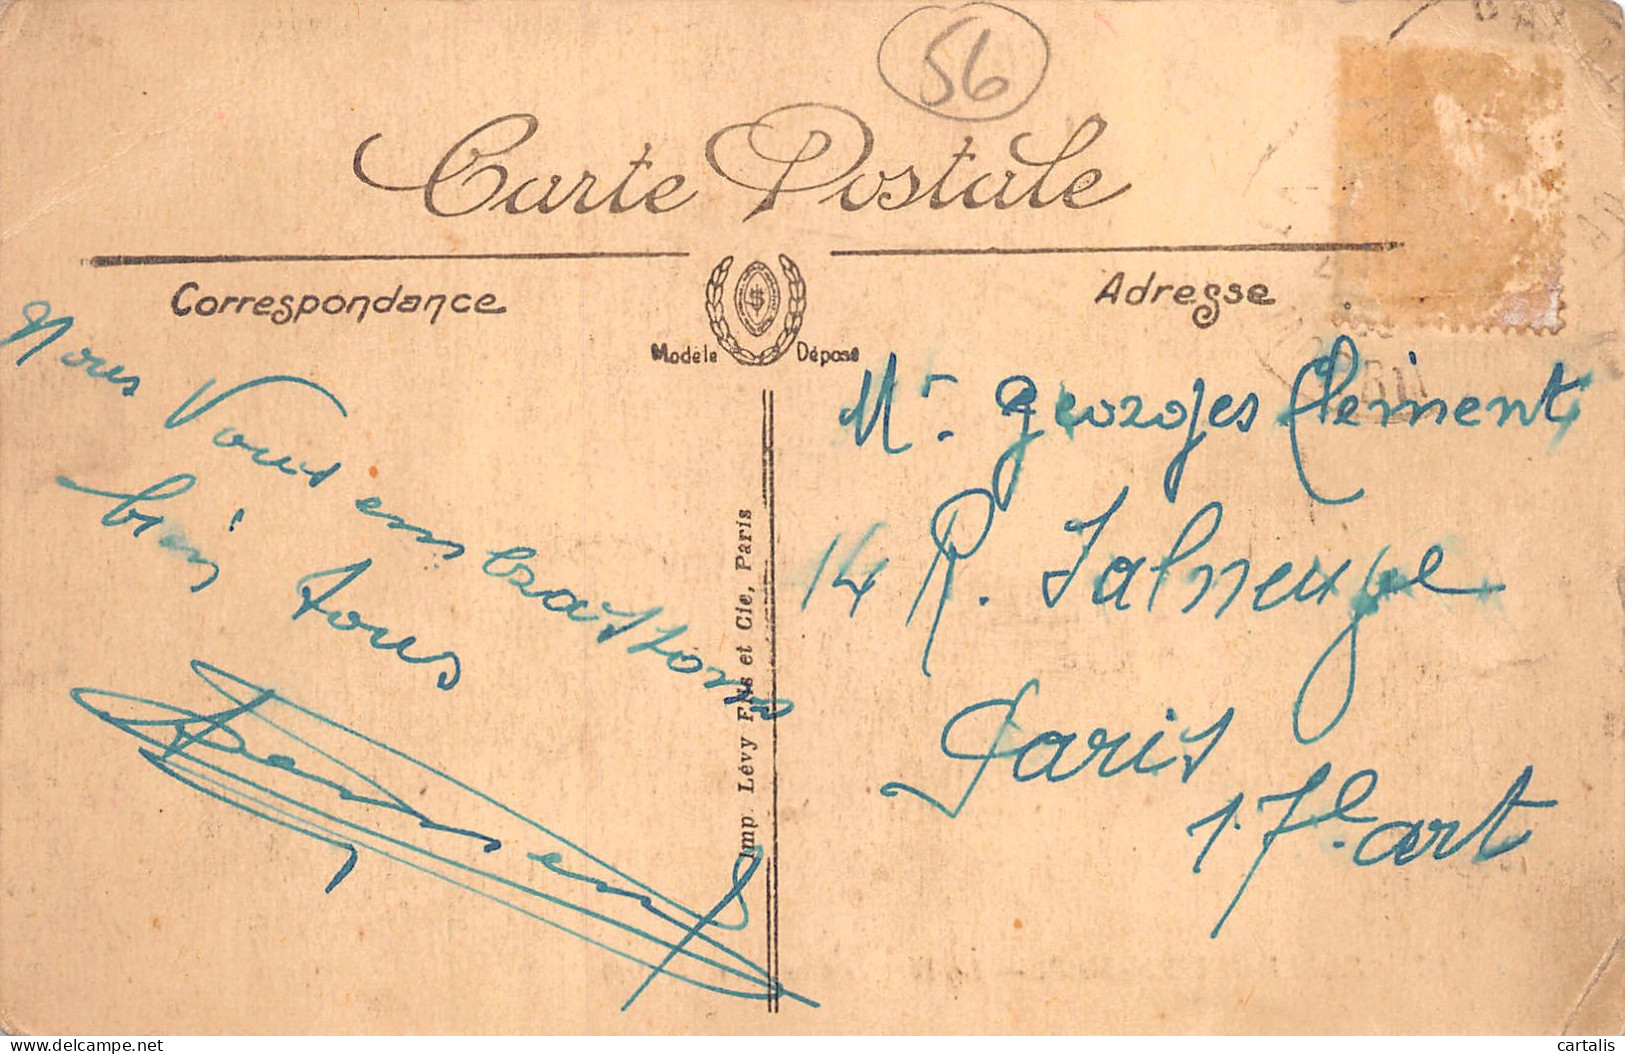 56
Carte Postale
Correspondance
Adresse
Modèle Déposé
Nous Vous embrassons
bien tous
Imp. Lévy Fils et Cie, Paris
Mr. Georges Clement
14 R.
Paris
17e art
cartalis
delcampe.net